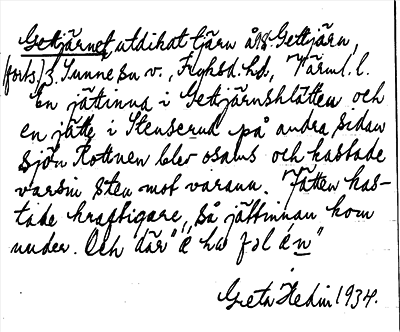 Gettjärnet utdikat tjärn åt Gettjärn,
(forts.) 3. Sunne sn v., Fryksd. hd, Värml. l.
En jättinna i Gettjärnsklätten och
en jätte i Stenserud på andra sidan
sjön Rottnen blev osams och kastade
varsin sten mot varann. Jätten kas-
tade kraftigare, så jättinnan kom
under. Och där "ä ho fol än"
Greta Hedin 1934.